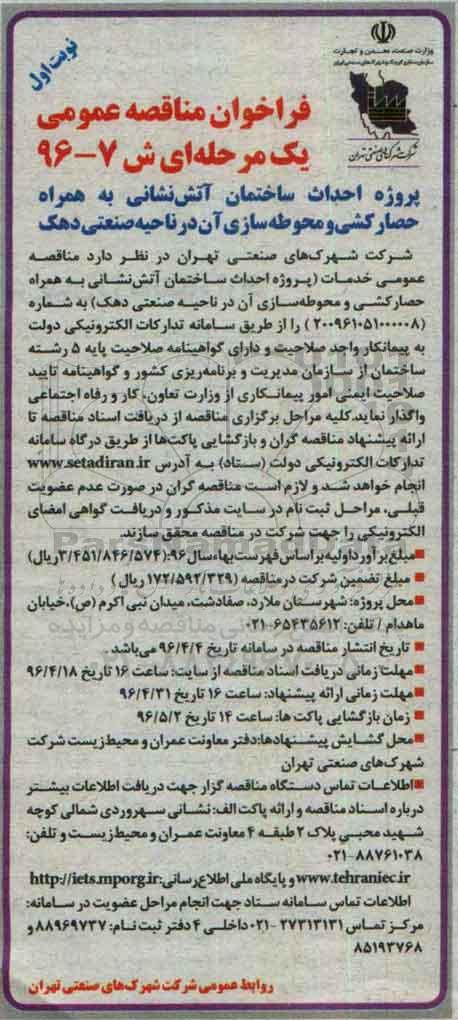 وزارت صنعت، معدن و تجارت
سازمان صنایع کوچک و شهرک‌های صنعتی ایران
شرکت شهرک‌های صنعتی تهران
نوبت اول
فراخوان مناقصه عمومی
یک مرحله‌ای ش ۷-۹۶
پروژه احداث ساختمان آتش‌نشانی به همراه
حصارکشی و محوطه‌سازی آن در ناحیه صنعتی دهک
شرکت شهرک‌های صنعتی تهران در نظر دارد مناقصه
عمومی خدمات (پروژه احداث ساختمان آتش‌نشانی به همراه
حصارکشی و محوطه‌سازی آن در ناحیه صنعتی دهک) به شماره
(۲۰۰۹۶۱۰۵۱۰۰۰۰۰۸) را از طریق سامانه تدارکات الکترونیکی دولت
به پیمانکار واجد صلاحیت و دارای گواهینامه صلاحیت پایه ۵ رشته
ساختمان از سازمان مدیریت و برنامه‌ریزی کشور و گواهینامه تایید
صلاحیت ایمنی امور پیمانکاری از وزارت تعاون، کار و رفاه اجتماعی
واگذار نماید. کلیه مراحل برگزاری مناقصه از دریافت اسناد مناقصه تا
ارائه پیشنهاد مناقصه گران و بازگشایی پاکت‌ها از طریق درگاه سامانه
تدارکات الکترونیکی دولت (ستاد) به آدرس www.setadiran.ir
انجام خواهد شد و لازم است مناقصه گران در صورت عدم عضویت
قبلی، مراحل ثبت نام در سایت مذکور و دریافت گواهی امضای
الکترونیکی را جهت شرکت در مناقصه محقق سازند.
■ مبلغ برآورد اولیه براساس فهرست بهاء سال ۹۶: (۳/۴۵۱/۸۴۶/۵۷۴ ریال)
■ مبلغ تضمین شرکت در مناقصه (۱۷۲/۵۹۲/۳۲۹ ریال)
■ محل پروژه: شهرستان ملارد، صفادشت، میدان نبی اکرم (ص)، خیابان
ماهدام / تلفن: ۶۵۴۳۵۶۱۲-۰۲۱
■ تاریخ انتشار مناقصه در سامانه تاریخ ۹۶/۴/۴ می‌باشد.
■ مهلت زمانی دریافت اسناد مناقصه از سایت: ساعت ۱۶ تاریخ ۹۶/۴/۱۸
■ مهلت زمانی ارائه پیشنهاد: ساعت ۱۶ تاریخ ۹۶/۴/۳۱
■ زمان بازگشایی پاکت ها: ساعت ۱۴ تاریخ ۹۶/۵/۲
■ محل گشایش پیشنهادها: دفتر معاونت عمران و محیط‌زیست شرکت
شهرک‌های صنعتی تهران
■ اطلاعات تماس دستگاه مناقصه گزار جهت دریافت اطلاعات بیشتر
درباره اسناد مناقصه و ارائه پاکت الف: نشانی سهروردی شمالی کوچه
شهید محبی پلاک ۲ طبقه ۴ معاونت عمران و محیط‌زیست و تلفن:
۸۸۷۶۱۰۳۸-۰۲۱
www.tehraniec.ir و پایگاه ملی اطلاع رسانی: http://iets.mporg.ir
اطلاعات تماس سامانه ستاد جهت انجام مراحل عضویت در سامانه:
مرکز تماس ۲۷۳۱۳۱۳۱-۰۲۱ داخلی ۴ دفتر ثبت نام: ۸۸۹۶۹۷۳۷ و
۸۵۱۹۳۷۶۸
روابط عمومی شرکت شهرک‌های صنعتی تهران